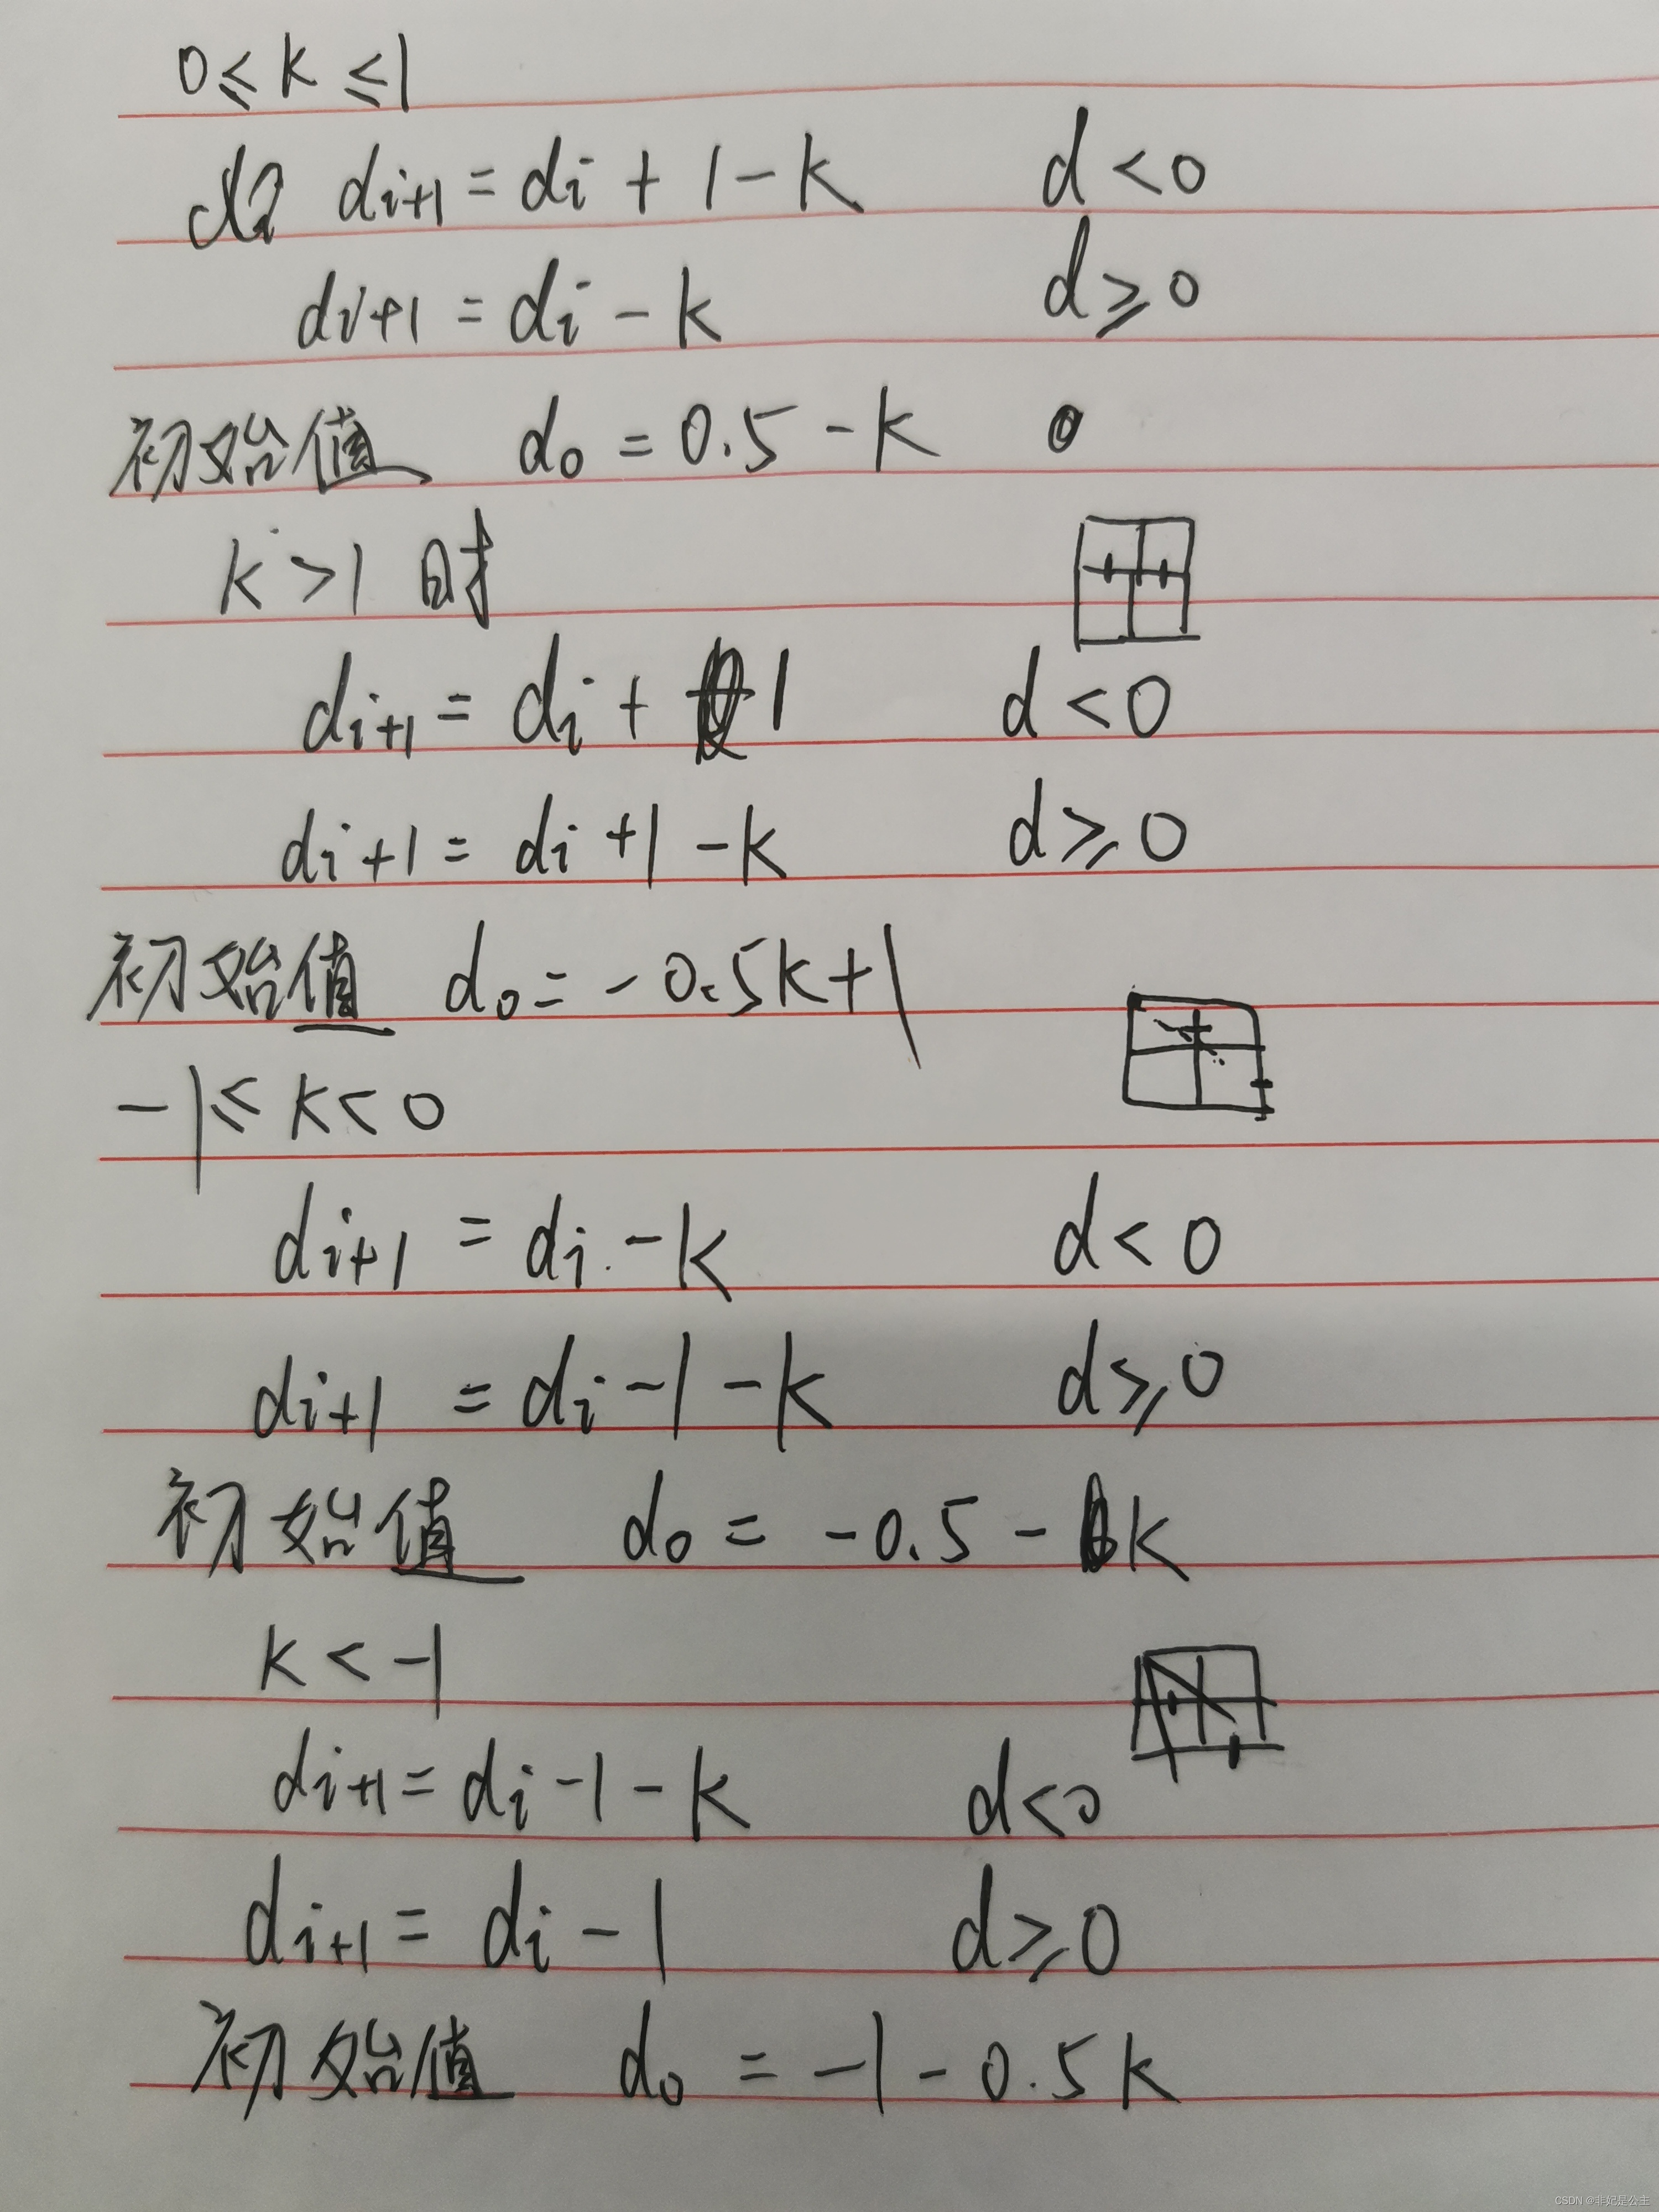 0≤k≤1
di+1=di+1-k d<0
di+1=di-k d≥0
初始值 d0=0.5-k
k>1时
di+1=di+1 d<0
di+1=di+1-k d≥0
初始值 d0=-0.5k+1
-1≤k<0
di+1=di-k d<0
di+1=di-1-k d≥0
初始值 d0=-0.5-k
k<-1
di+1=di-1-k d<0
di+1=di-1 d≥0
初始值 d0=-1-0.5k
CSDN @非妃是公主